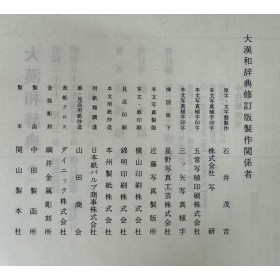 大漢和辞典修訂版製作関係者
原字・文字盤製作 石井茂吉
本文写真植字印字 株式会社写研
本文写真植字印字 五常写植印刷株式会社
本文写真植字印字 三ッ矢写真植字
挿図版下 星野写真工芸社
本文写真製版 近藤写真製版所
本文・扉印刷 横山印刷株式会社
見返印刷 錦明印刷株式会社
本文用紙抄造 本州製紙株式会社
用紙類調達 日本紙パルプ商事株式会社
扉・見返用紙抄造 山田商会
表紙クロス ダイニック株式会社
金版彫刻 綱井金属彫刻所
製函 田中製函所
製本 関山製本社